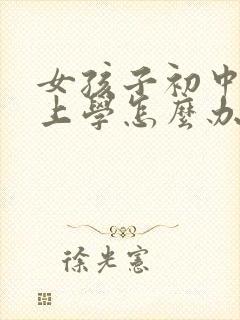 女孩子初中
上學怎麼办
徐光憲